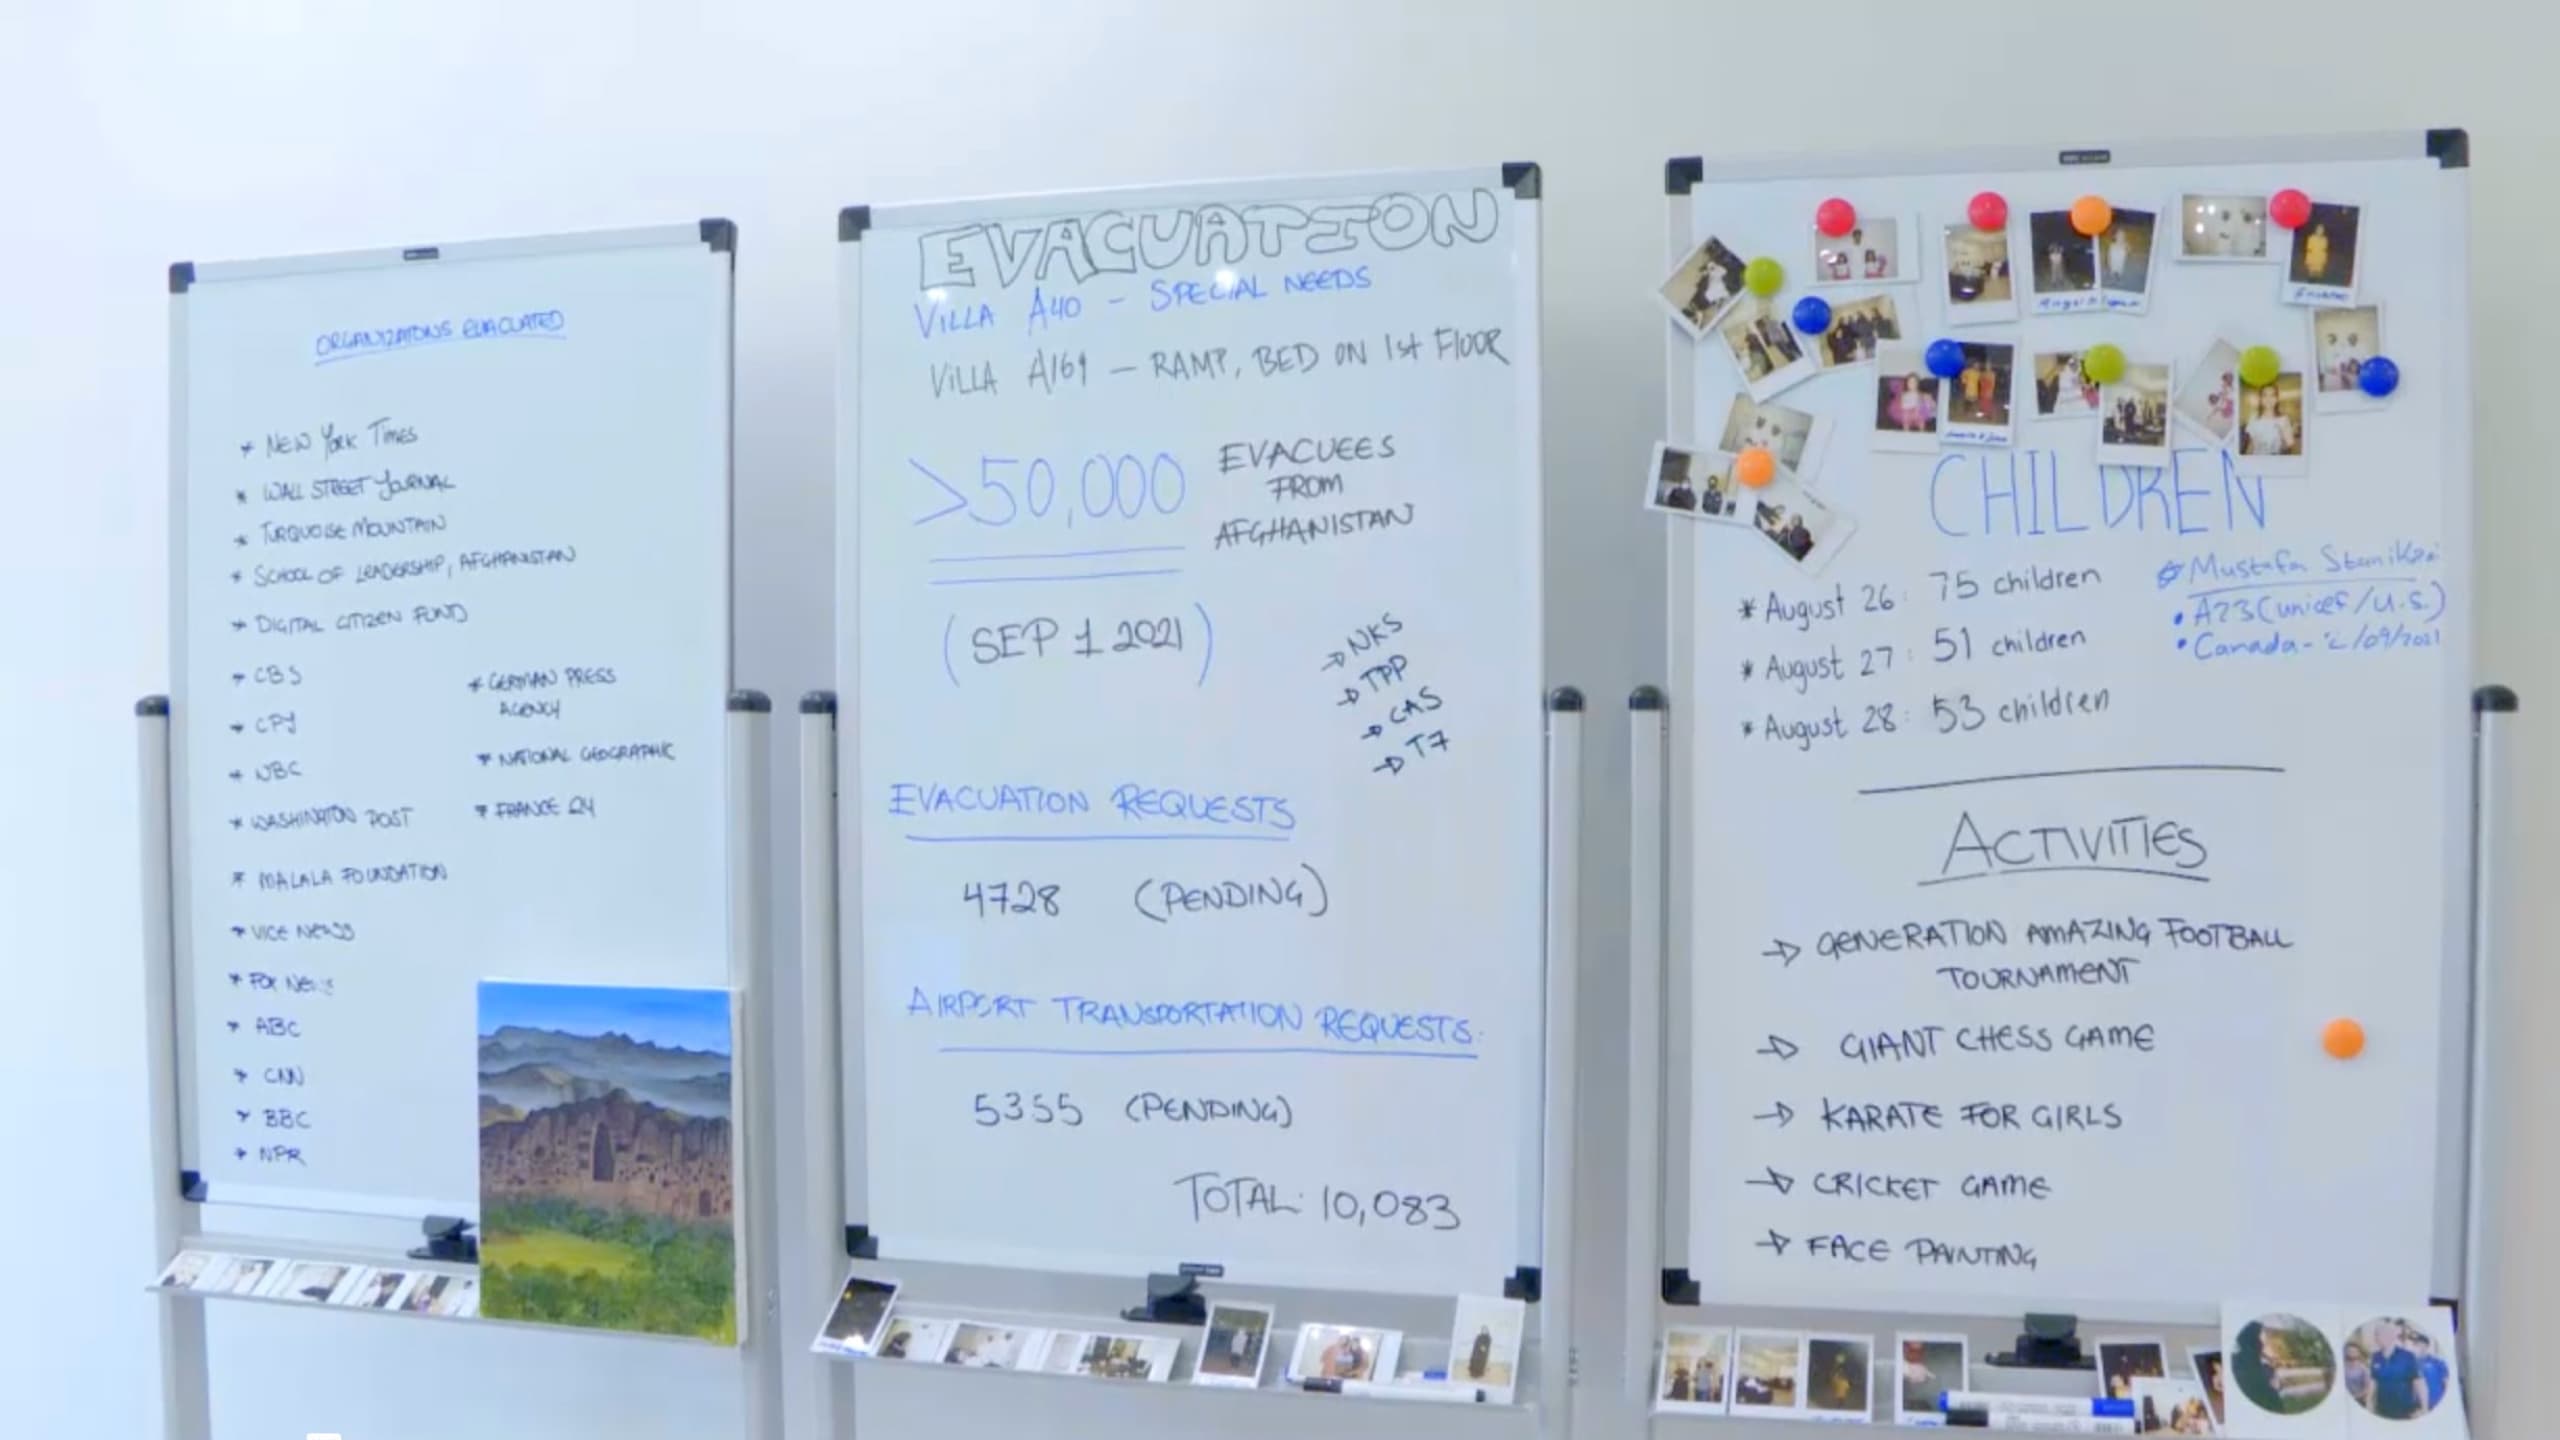 ORGANIZATIONS EVACUATED
* NEW YORK TIMES
* WALL STREET JOURNAL
* TURQUOISE MOUNTAIN
* SCHOOL OF LEADERSHIP, AFGHANISTAN
* DIGITAL CITIZEN FUND
* CBS
* CPJ
* NBC
* WASHINGTON POST
* MALALA FOUNDATION
* VICE NEWS
* FOX NEWS
* ABC
* CNN
* BBC
* NPR
* GERMAN PRESS
AGENCY
* NATIONAL GEOGRAPHIC
* FRANCE 24
EVACUATION
VILLA A40 - SPECIAL NEEDS
VILLA A169 - RAMP, BED ON 1st FLOOR
>50,000
EVACUEES
FROM
AFGHANISTAN
(SEP 1 2021)
→ NKS
→ TPP
→ CAS
→ T7
EVACUATION REQUESTS
4728 (PENDING)
AIRPORT TRANSPORTATION REQUESTS:
5355 (PENDING)
TOTAL: 10,083
CHILDREN
* August 26: 75 children
* August 27: 51 children
* August 28: 53 children
Mustafa
• A23 (unicef/U.S.)
• Canada - /09/2021
ACTIVITIES
→ GENERATION AMAZING FOOTBALL
TOURNAMENT
→ GIANT CHESS GAME
→ KARATE FOR GIRLS
→ CRICKET GAME
→ FACE PAINTING